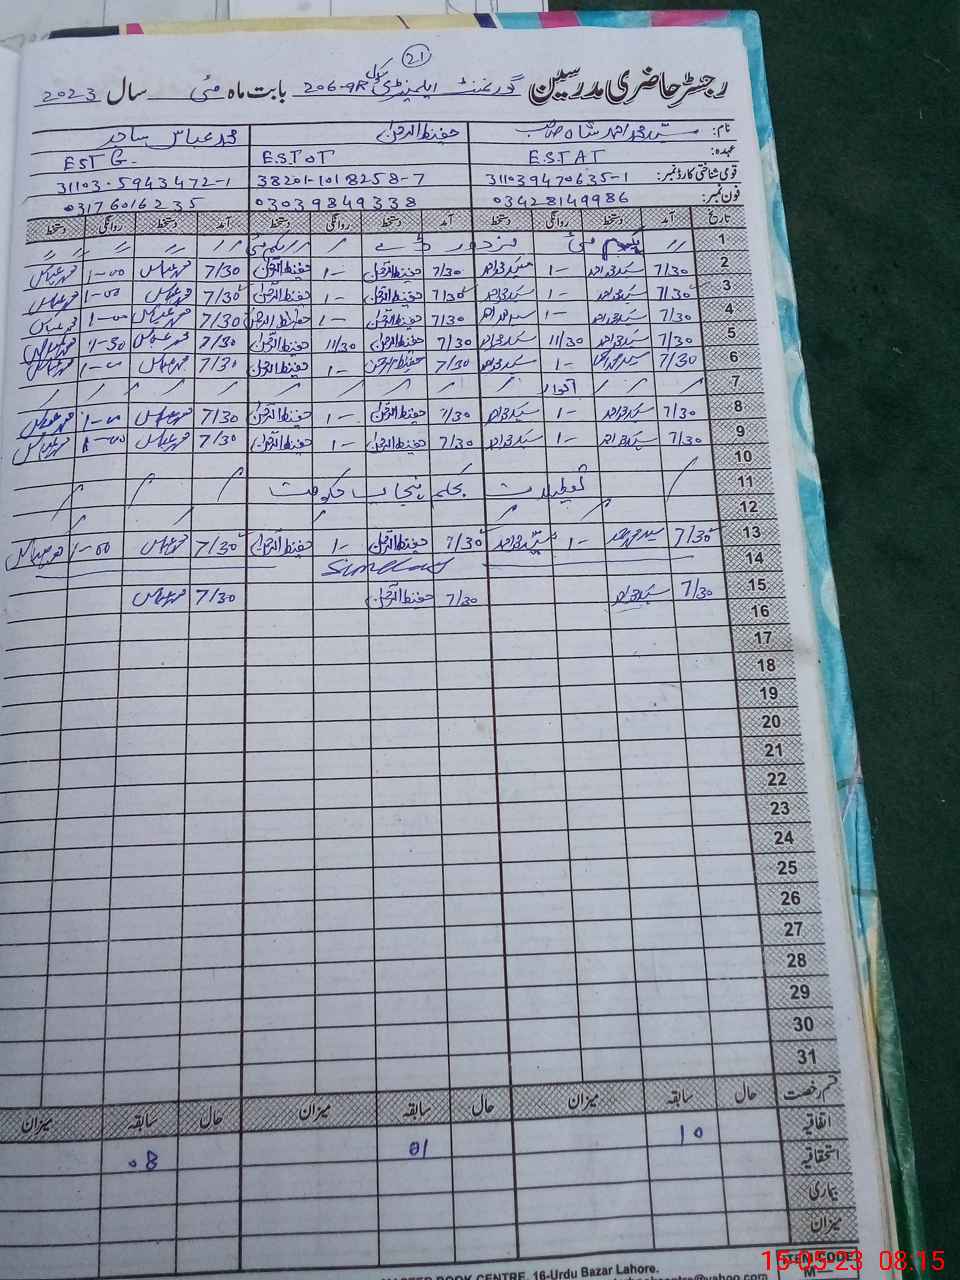 21
رجسٹر حاضری مدرسین گورنمنٹ ایلیمنٹری سکول 206-9R بابت ماہ مئی سال 2023
نام: سید محمد احمد شاہ صاحب حفیظ الرحمن محمد عباس ساجد
عہدہ: E.S.T A T E.S.T O T EST G.
قومی شناختی کارڈ نمبر: 311039470635-1 38201-1018258-7 31103-5943472-1
فون نمبر: 03428149986 03039849338 03176016235
تاریخ آمد دستخط روانگی دستخط آمد دستخط روانگی دستخط آمد دستخط روانگی دستخط
1 یکم مئی مزدور ڈے یکم مئی
2 7/30 1- 7/30 حفیظ الرحمن 1- حفیظ الرحمن 7/30 محمد عباس 1-00 محمد عباس
3 7/30 1- 7/30 حفیظ الرحمن 1- حفیظ الرحمن 7/30 محمد عباس 1-00 محمد عباس
4 7/30 1- 7/30 حفیظ الرحمن 1- حفیظ الرحمن 7/30 محمد عباس 1-00 محمد عباس
5 7/30 11/30 7/30 حفیظ الرحمن 11/30 حفیظ الرحمن 7/30 محمد عباس محمد عباس
6 7/30 1- 7/30 حفیظ الرحمن 1- حفیظ الرحمن 7/30 محمد عباس 1-00 محمد عباس
7 اتوار
8 7/30 1- 7/30 حفیظ الرحمن 1- حفیظ الرحمن 7/30 محمد عباس 1-00 محمد عباس
9 7/30 1- 7/30 حفیظ الرحمن 1- حفیظ الرحمن 7/30 محمد عباس محمد عباس
10
11 تعطیلات بحکم پنجاب حکومت
12
13 7/30 1- 7/30 حفیظ الرحمن 1- حفیظ الرحمن 7/30 محمد عباس 1-00 محمد عباس
14
15 7/30 7/30 حفیظ الرحمن 7/30 محمد عباس
16
17
18
19
20
21
22
23
24
25
26
27
28
29
30
31
قسم رخصت حال سابقہ میزان حال سابقہ میزان حال سابقہ میزان
اتفاقیہ 10 01 08
استحقاقیہ
بیماری
میزان
ITEM CODE
BOOK CENTRE, 16-Urdu Bazar Lahore.
@yahoo.com
15-05-23 08:15